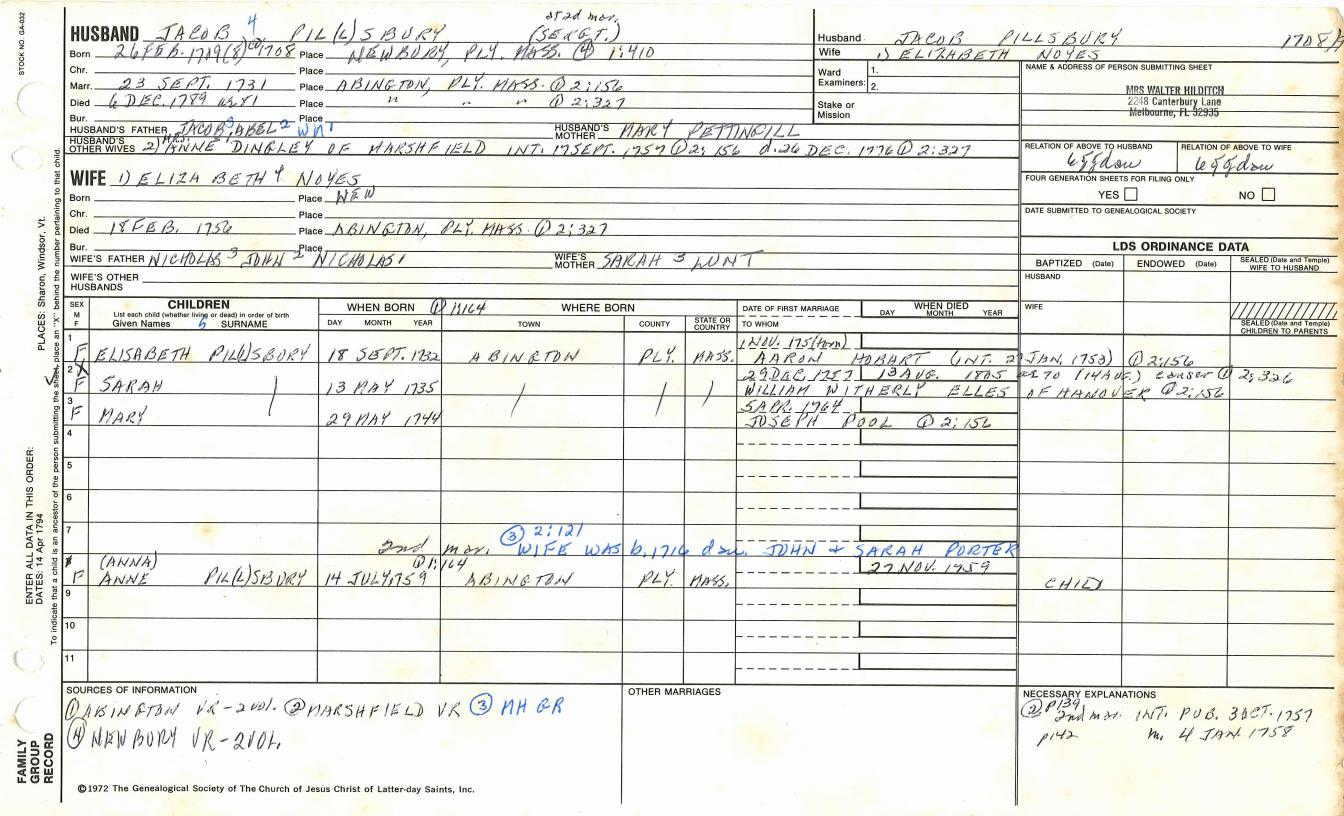 STOCK NO. GA-032
HUSBAND JACOB 4 PIL(L)SBURY (SERGT.) at 2d mar.
Born 26 FEB. 1709(8) 1708 Place NEWBURY, PLY. MASS. ④ 1:410
Chr. Place
Marr. 23 SEPT. 1731 Place ABINGTON, PLY. MASS. ① 2:156
Died 6 DEC. 1789 ae 81 Place " " " ① 2:327
Bur. Place
HUSBAND'S FATHER JACOB 3 ABEL 2 WM 1 HUSBAND'S MOTHER MARY PETTINGILL
HUSBAND'S OTHER WIVES 2) MRS. ANNE DINGLEY OF MARSHFIELD INT. 17 SEPT. 1757 ① 2:156 d. 26 DEC. 1776 ① 2:327
WIFE 1) ELIZABETH 4 NOYES
Born Place NEW
Chr. Place
Died 18 FEB. 1756 Place ABINGTON, PLY. MASS. ① 2:327
Bur. Place
WIFE'S FATHER NICHOLAS 3 JOHN 2 NICHOLAS 1 WIFE'S MOTHER SARAH 3 LUNT
WIFE'S OTHER HUSBANDS
Husband JACOB PILLSBURY 1708/9
Wife 1) ELIZABETH NOYES
Ward Examiners: 1. 2.
Stake or Mission
NAME & ADDRESS OF PERSON SUBMITTING SHEET
MRS WALTER HILDITCH
2248 Canterbury Lane
Melbourne, FL 32935
RELATION OF ABOVE TO HUSBAND RELATION OF ABOVE TO WIFE
6 ggdau 6 ggdau
FOUR GENERATION SHEETS FOR FILING ONLY
YES NO
DATE SUBMITTED TO GENEALOGICAL SOCIETY
LDS ORDINANCE DATA
BAPTIZED (Date) ENDOWED (Date) SEALED (Date and Temple) WIFE TO HUSBAND
HUSBAND
WIFE
SEALED (Date and Temple) CHILDREN TO PARENTS
SEX M F CHILDREN
List each child (whether living or dead) in order of birth
Given Names 5 SURNAME
WHEN BORN ① 1:164 DAY MONTH YEAR
WHERE BORN TOWN COUNTY STATE OR COUNTRY
DATE OF FIRST MARRIAGE TO WHOM
WHEN DIED DAY MONTH YEAR
1 F ELISABETH PIL(L)SBURY 18 SEPT. 1732 ABINGTON PLY. MASS. 1 NOV. 175(torn)
AARON HOBART (INT. 27 JAN. 1753) ① 2:156
2 X F SARAH 13 MAY 1735 29 DEC. 1757 13 AUG. 1805 ae 70 (14 AUG.) ① 2:326
WILLIAM WITHERLY ELLES OF HANOVER ① 2:156
3 F MARY 29 MAY 1744 5 APR. 1764
JOSEPH POOL ① 2:156
4
5
6
7 2nd mar. ③ 2:121 WIFE WAS b. 1716 dau. JOHN & SARAH PORTER
F (ANNA) ANNE PIL(L)SBURY ① 1:164 14 JULY 1759 ABINGTON PLY. MASS. 27 NOV. 1759 CHILD
9
10
11
SOURCES OF INFORMATION
① ABINGTON VR-2 VOL. ② MARSHFIELD VR ③ MH GR
④ NEWBURY VR-2 VOL.
OTHER MARRIAGES
NECESSARY EXPLANATIONS
② p139 2nd mar. INT. PUB. 3 OCT. 1757
p142 m. 4 JAN. 1758
©1972 The Genealogical Society of The Church of Jesus Christ of Latter-day Saints, Inc.
FAMILY GROUP RECORD
ENTER ALL DATA IN THIS ORDER:
DATES: 14 Apr 1794 PLACES: Sharon, Windsor, Vt.
To indicate that a child is an ancestor of the person submitting the sheet, place an "X" behind the number pertaining to that child.